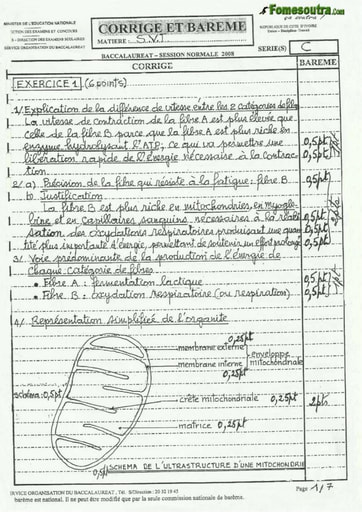 Fomesoutra.com
ça soutra !
MINISTERE DE L'EDUCATION NATIONALE
CORRIGE ET BAREME
DIRECTION DES EXAMENS ET CONCOURS
MATIERE : S.V.T
SERVICE ORGANISATION DU BACCALAUREAT
REPUBLIQUE DE COTE D'IVOIRE
Union - Discipline - Travail
BACCALAUREAT – SESSION NORMALE 2008
SERIE(S) C
CORRIGE
BAREME
EXERCICE 1 (6 POINTS)
1/ Explication de la différence de vitesse entre les 2 catégories de fibre
La vitesse de contraction de la fibre A est plus élevée que
celle de la fibre B parce que la fibre A est plus riche en
enzyme hydrolysant l'ATP; ce qui va permettre une 0,5pt
libération rapide de l'énergie nécessaire à la contrac- 0,5pt
tion.
2/ a) Précision de la fibre qui résiste à la fatigue : fibre B 0,5pt
b. Justification
La fibre B est plus riche en mitochondries, en myoglo-
bine et en capillaires sanguins nécessaires à la réali- 0,5pt
sation des oxydations respiratoires produisant une quan 0,5pt
tité plus importante d'énergie, permettant de soutenir un effort prolongé 0,5pt
3/ Voie prédominante de la production de l'énergie de
chaque catégorie de fibres
• Fibre A : fermentation lactique 0,5pt
• Fibre B : oxydation respiratoire (ou respiration) 0,5pt
1pt
4/ Représentation simplifiée de l'organite
0,25pt
membrane externe
enveloppe
membrane interne
mitochondriale
0,25pt
schéma : 0,5pt
crête mitochondriale 0,25pt
2pts
matrice 0,25pt
0,5pt
SCHEMA DE L'ULTRASTRUCTURE D'UNE MITOCHONDRIE
SERVICE ORGANISATION DU BACCALAUREAT, Tél.
Page 1/7
barème est national. Il ne peut être modifié que par la seule commission nationale de barème.